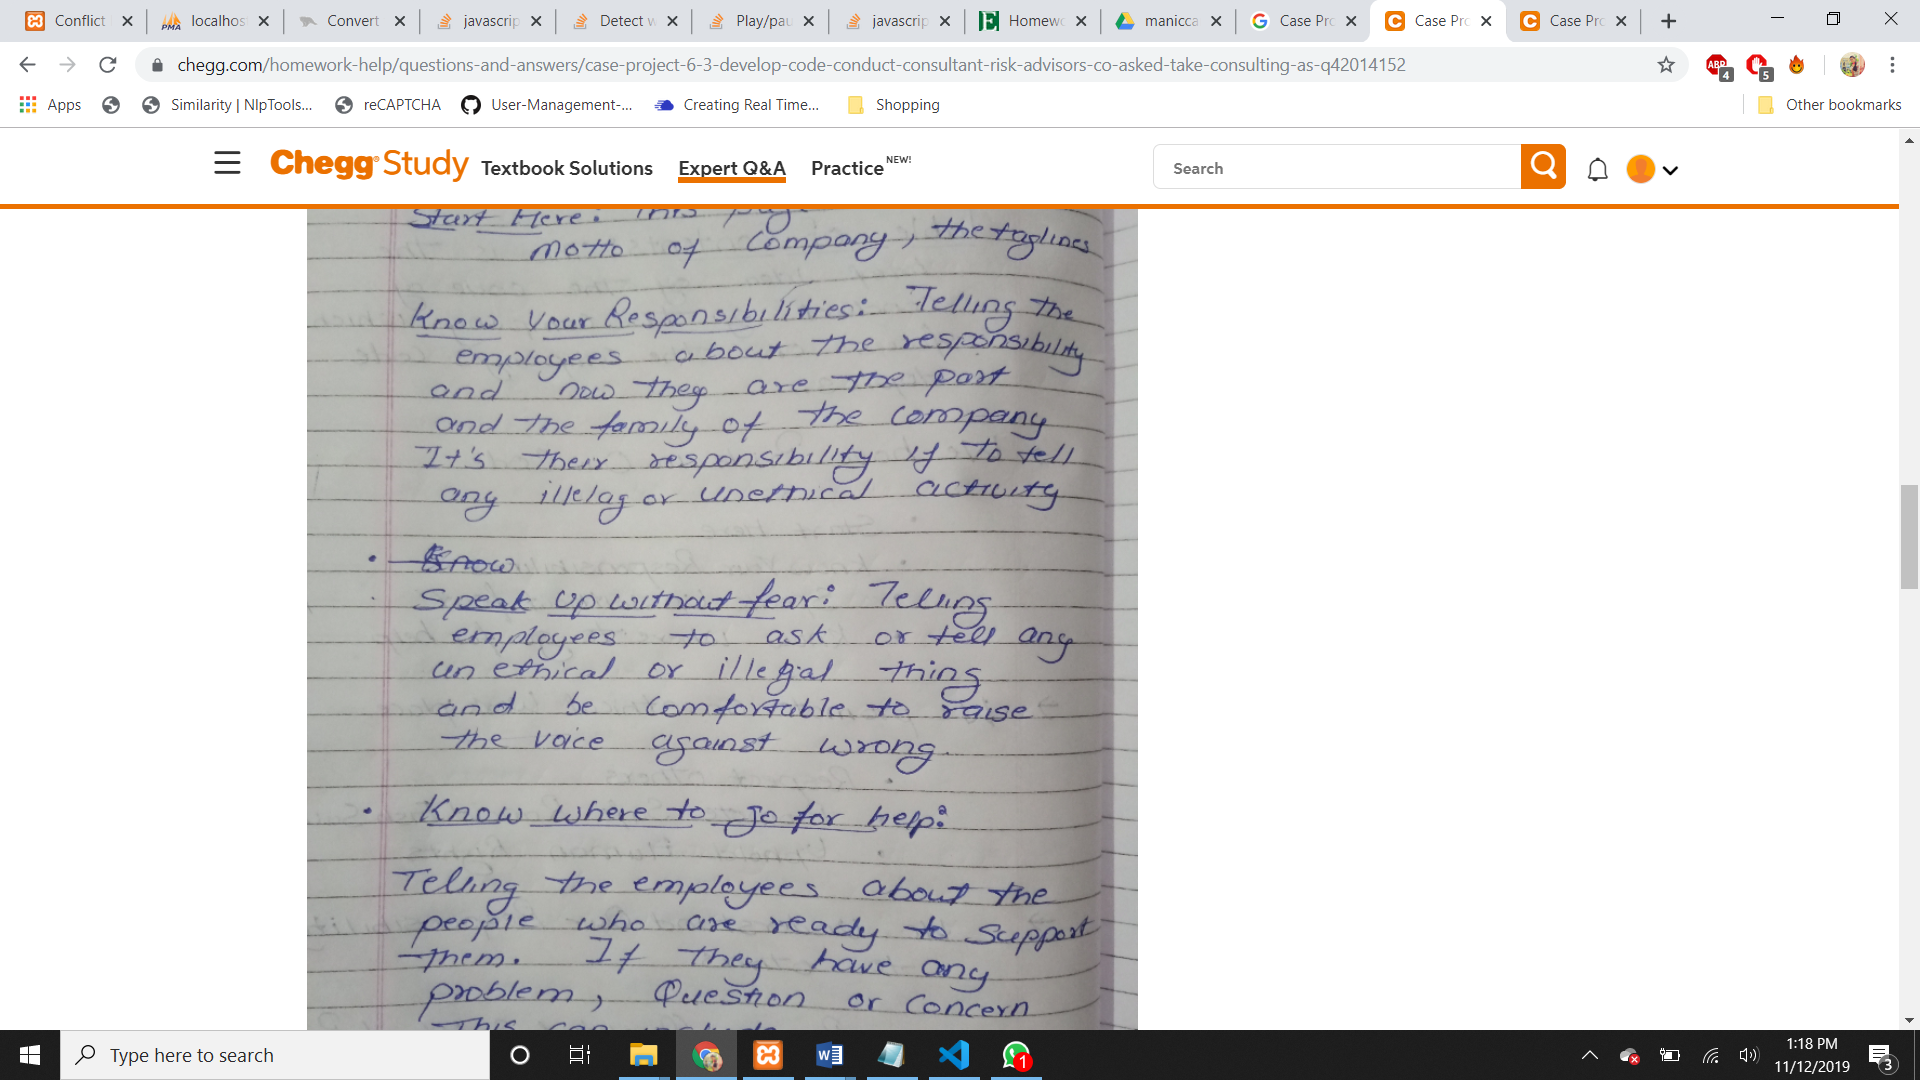 Conflict
localhos
Convert
javascrip
Detect w
Play/pau
javascrip
Homewo
manicca
Case Pro
Case Pro
Case Pro
chegg.com/homework-help/questions-and-answers/case-project-6-3-develop-code-conduct-consultant-risk-advisors-co-asked-take-consulting-as-q42014152
ABP 4
5
Apps
Similarity | NlpTools...
reCAPTCHA
User-Management-...
Creating Real Time...
Shopping
Other bookmarks
Chegg Study
Textbook Solutions
Expert Q&A
Practice NEW!
Search
Start Here: This
motto of Company, the taglines
Know Your Responsibilities: Telling the
employees about the responsibility
and now they are the part
and the family of the company
It's their responsibility if to tell
any illelag or unethical activity
• Know
Speak up without fear: Telling
employees to ask or tell any
un ethical or illegal thing
and be comfortable to raise
the voice against wrong.
• Know where to go for help:
Telling the employees about the
people who are ready to support
them. If they have any
problem, Question or concern
This can include
Type here to search
1
1:18 PM
11/12/2019
3